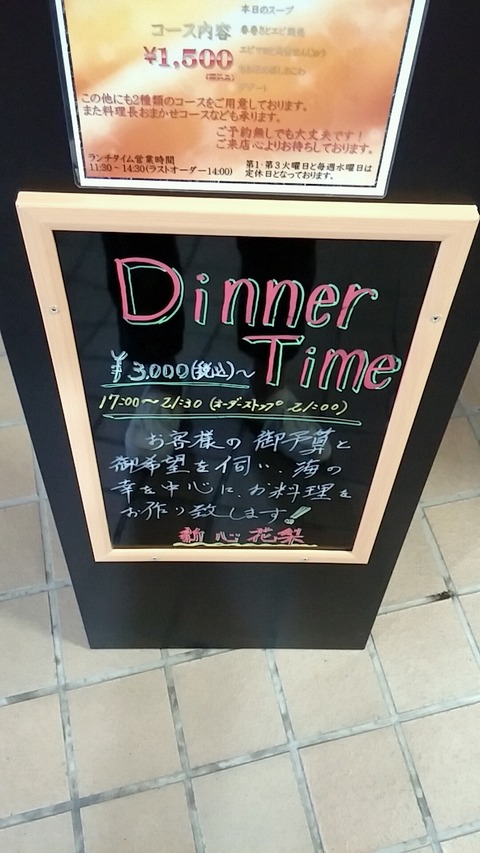 本日のスープ
コース内容
¥1,500
この他にも2種類のコースをご用意しております。
また料理長おまかせコースなども承ります。
ご予約無しでも大丈夫です！
ご来店心よりお待ちしております。
ランチタイム営業時間
11:30～14:30(ラストオーダー14:00)
第1・第3火曜日と毎週水曜日は
定休日となっております。
Dinner
Time
¥3,000(税込)～
17:00～21:30(オーダーストップ 21:00)
お客様の御予算と
御希望を伺い、海の
幸を中心に、お料理を
お作り致します!
新心花梨